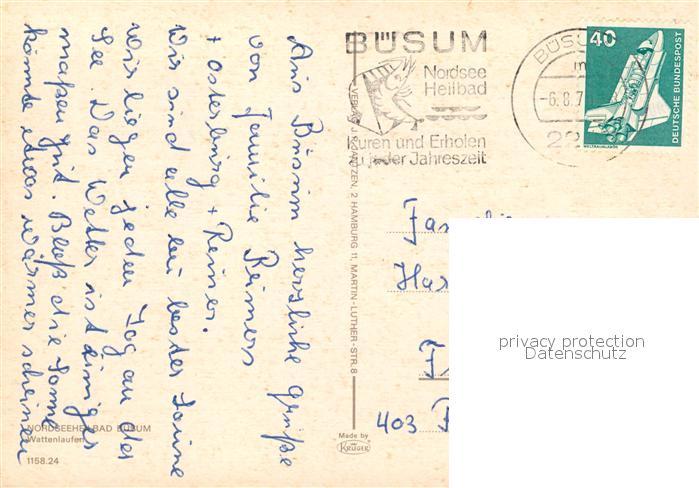 Aus Büsum herzliche Grüße
von Familie Reimers
+ Osterburg + Reiner.
Wir sind alle bei bester Laune
wir liegen jeden Tag an der
See. Das Wetter ist einiger
maßen gut. Bloß die Sonne
könnte etwas wärmer scheinen
NORDSEEHEILBAD BÜSUM
Wattenlaufen
1158.24
VERLAG J. K. JANTZEN, 2 HAMBURG 11, MARTIN-LUTHER-STR. 8
Made by
KRÜGER
BÜSUM
Nordsee
Heilbad
Kuren und Erholen
zu jeder Jahreszeit
BÜSU
-6.8.7
22
40
DEUTSCHE BUNDESPOST
WELTRAUMLABOR
Fam
Har
403
privacy protection
Datenschutz